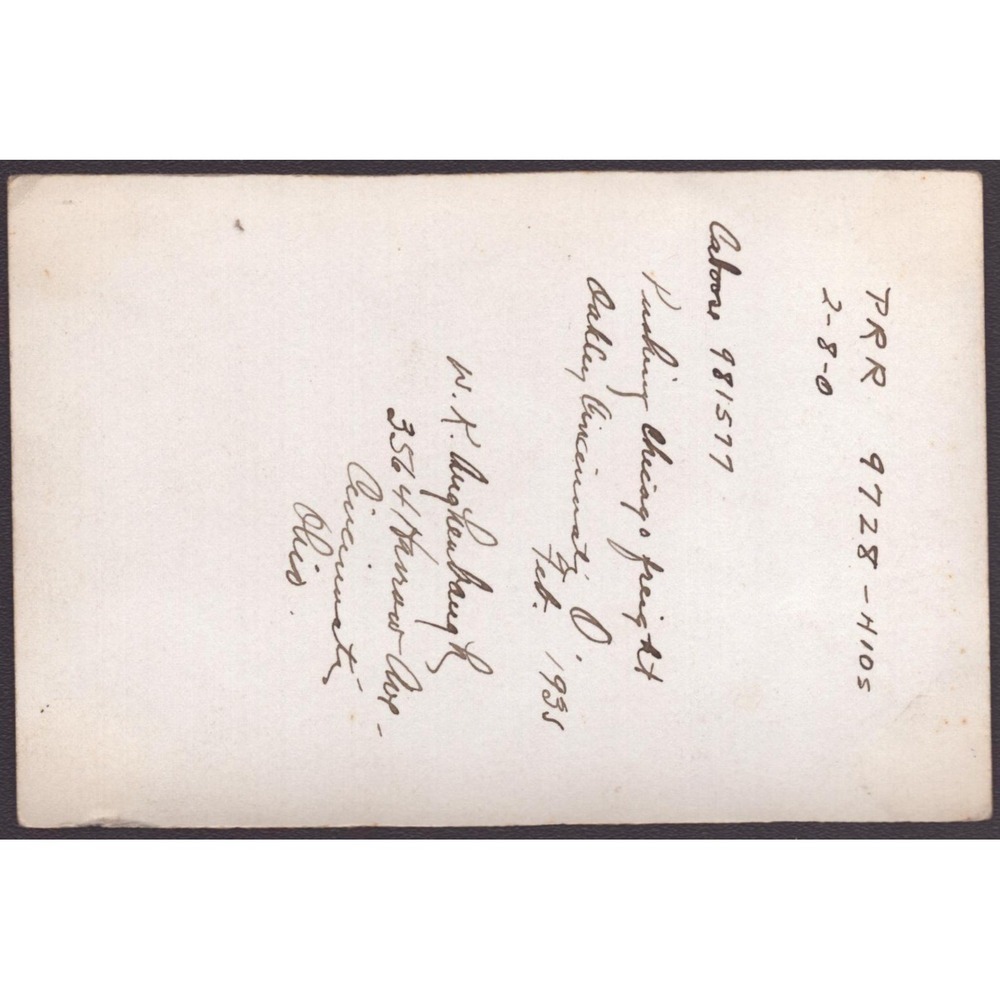 PRR 9728-H10s
2-8-0
Caboose 981577
Pushing Chicago freight
Oakley, Cincinnati, O.
Feb. 1935
W. K. Aughenbaugh
3564 Ave-
Cincinnati
Ohio.